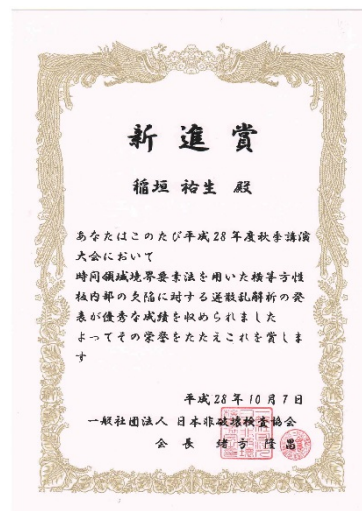 新進賞
稲垣 祐生 殿
あなたはこのたび平成28年度秋季講演
大会において
時間領域境界要素法を用いた横等方性
板内部の欠陥に対する逆散乱解析の発
表が優秀な成績を収められました
よってその栄誉をたたえこれを賞しま
す
平成28年10月7日
一般社団法人 日本非破壊検査協会
会長 緒方隆昌